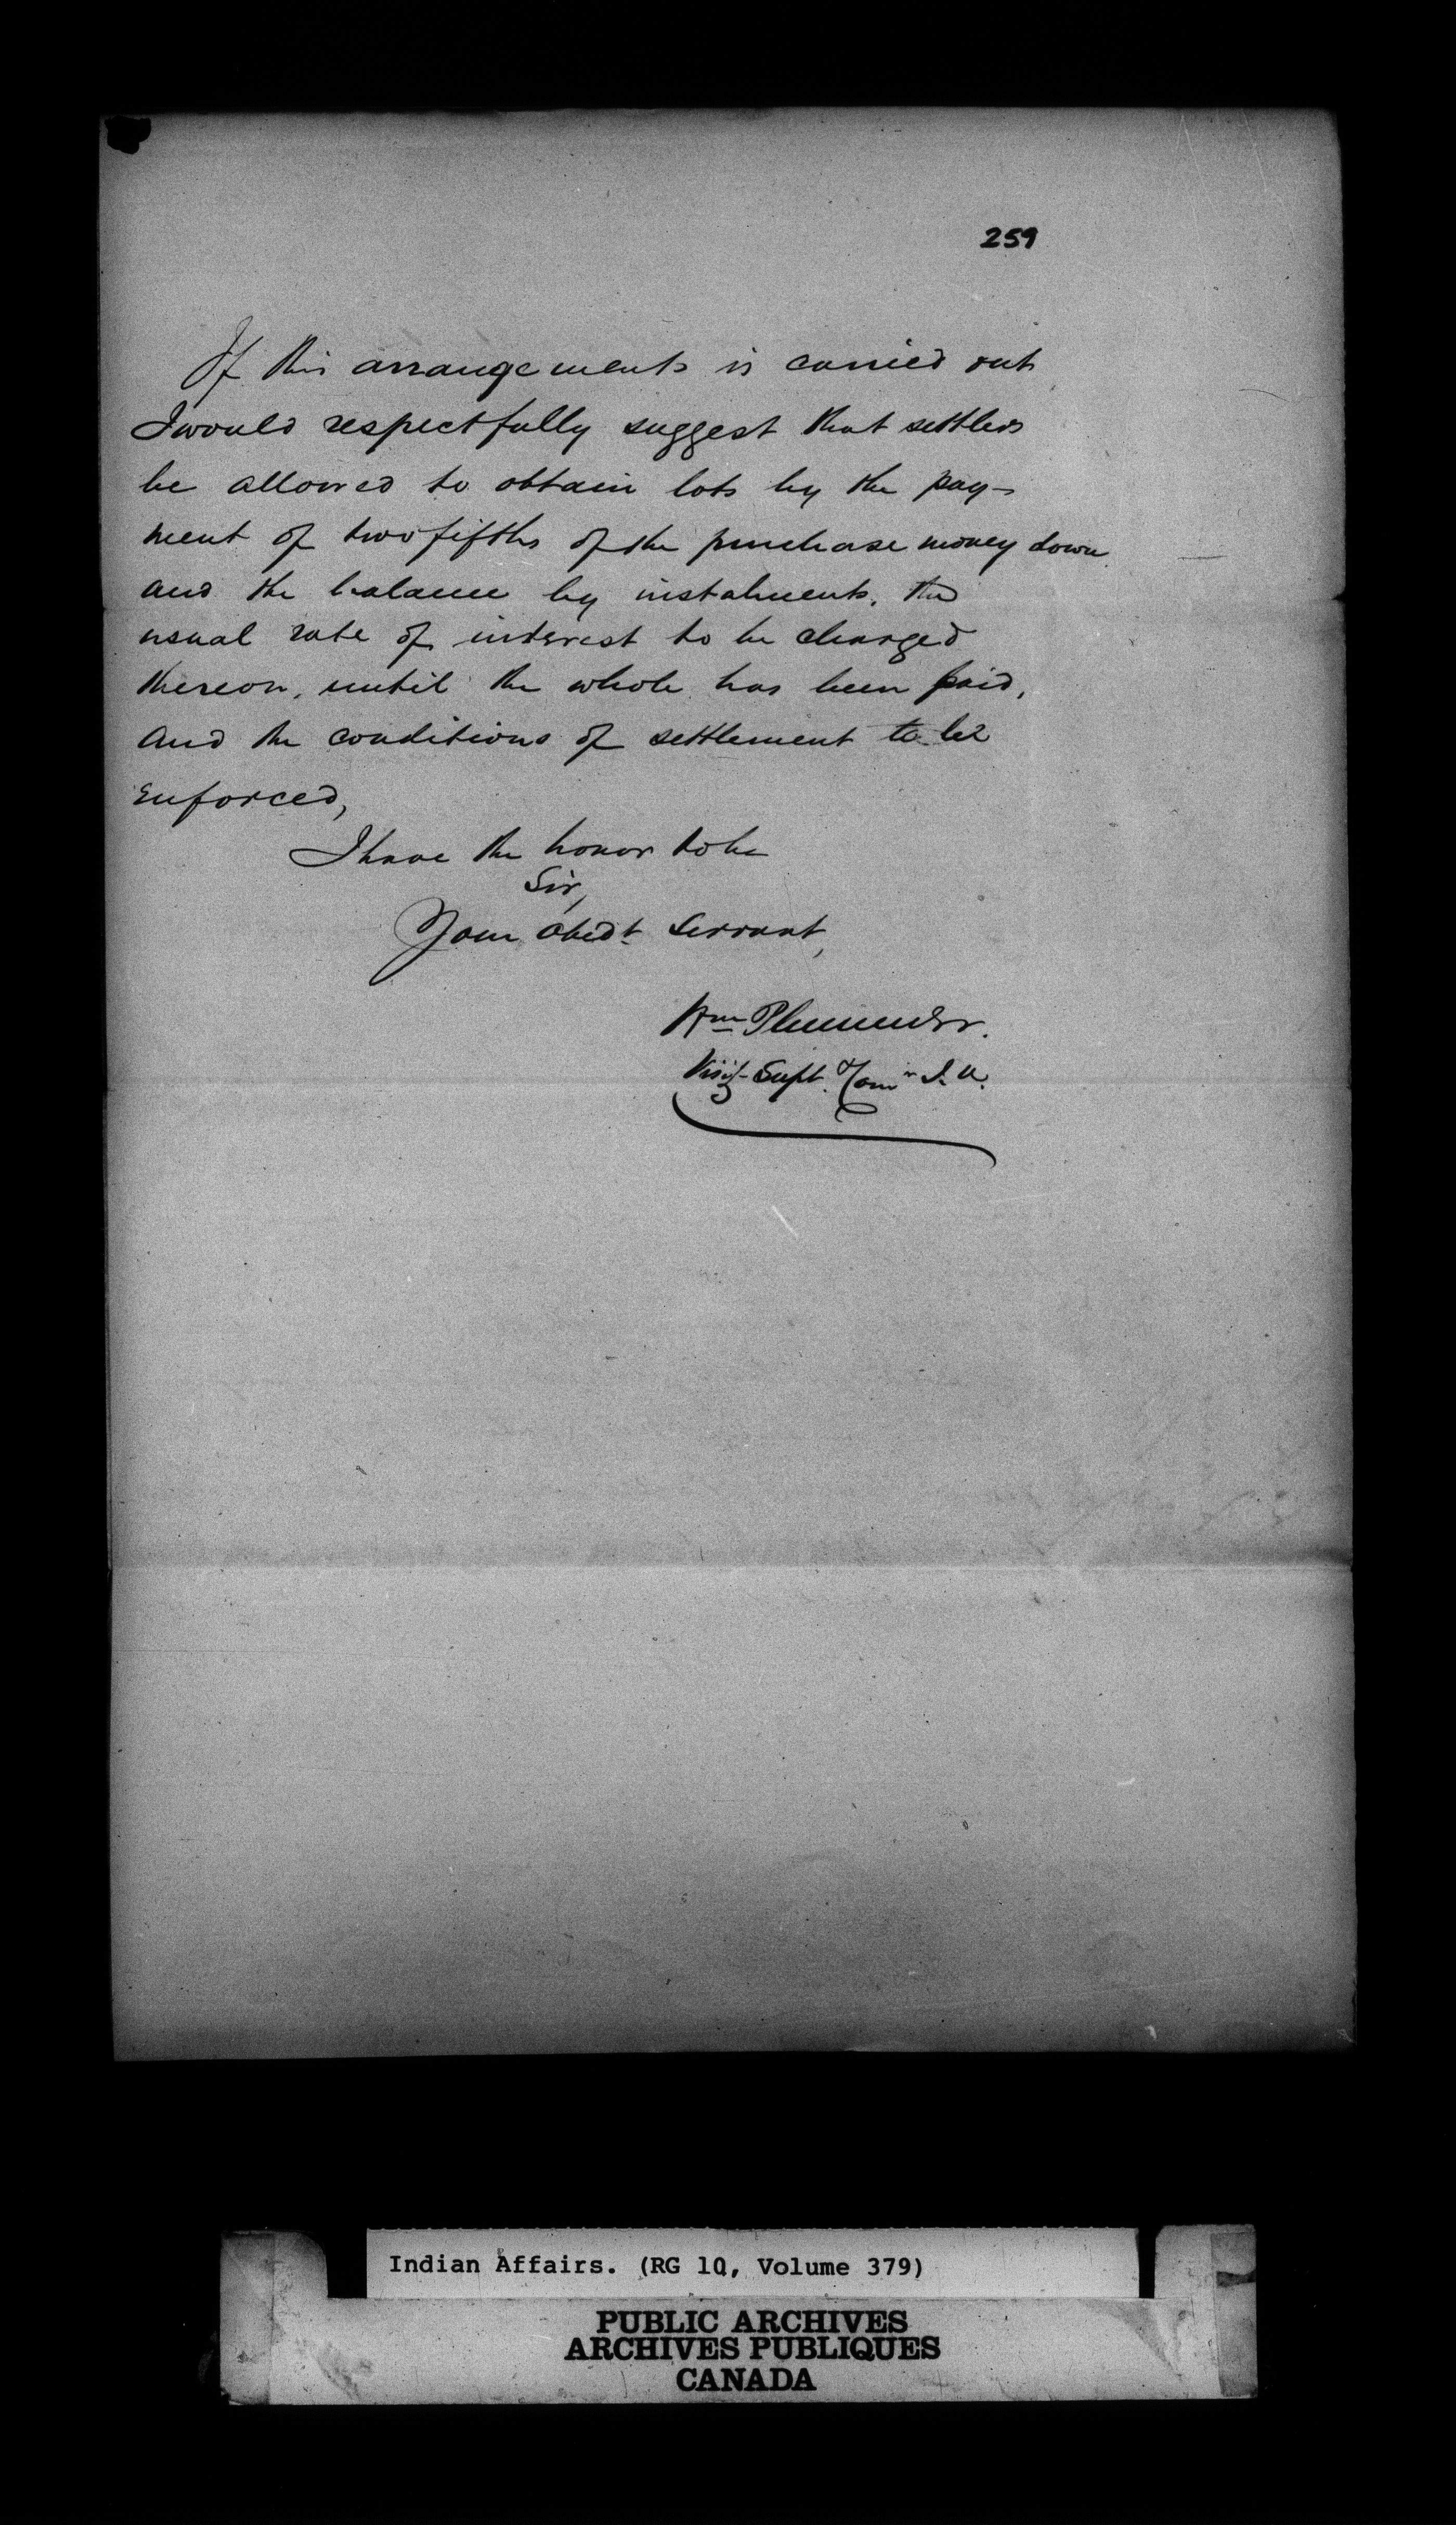 259
If this arrangements is carried out
I would respectfully suggest that settlers
be allowed to obtain lots by the pay-
ment of two fifths of the purchase money down
and the balance by instalments, the
usual rate of interest to be charged
thereon, until the whole has been paid,
and the conditions of settlement to be
enforced,
I have the honor to be
Sir,
Your Obedt Servant,
Wm Plummer.
Visitg Supt. & Comr I. A.
Indian Affairs. (RG 10, Volume 379)
PUBLIC ARCHIVES
ARCHIVES PUBLIQUES
CANADA